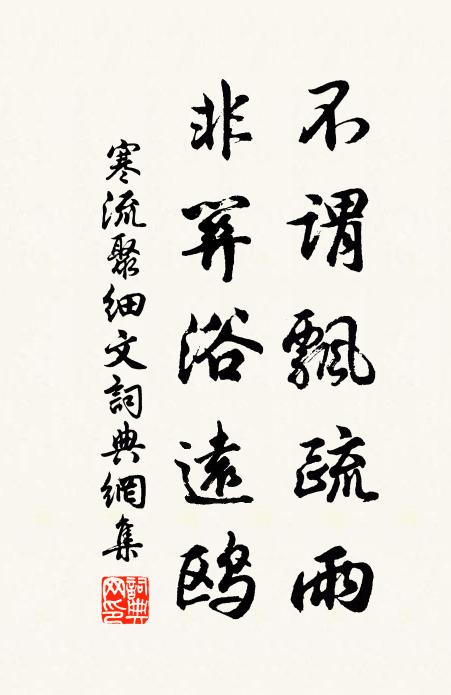 不谓飘疏雨
非关浴远鸥
寒流聚细文詞典網集
詞典网印